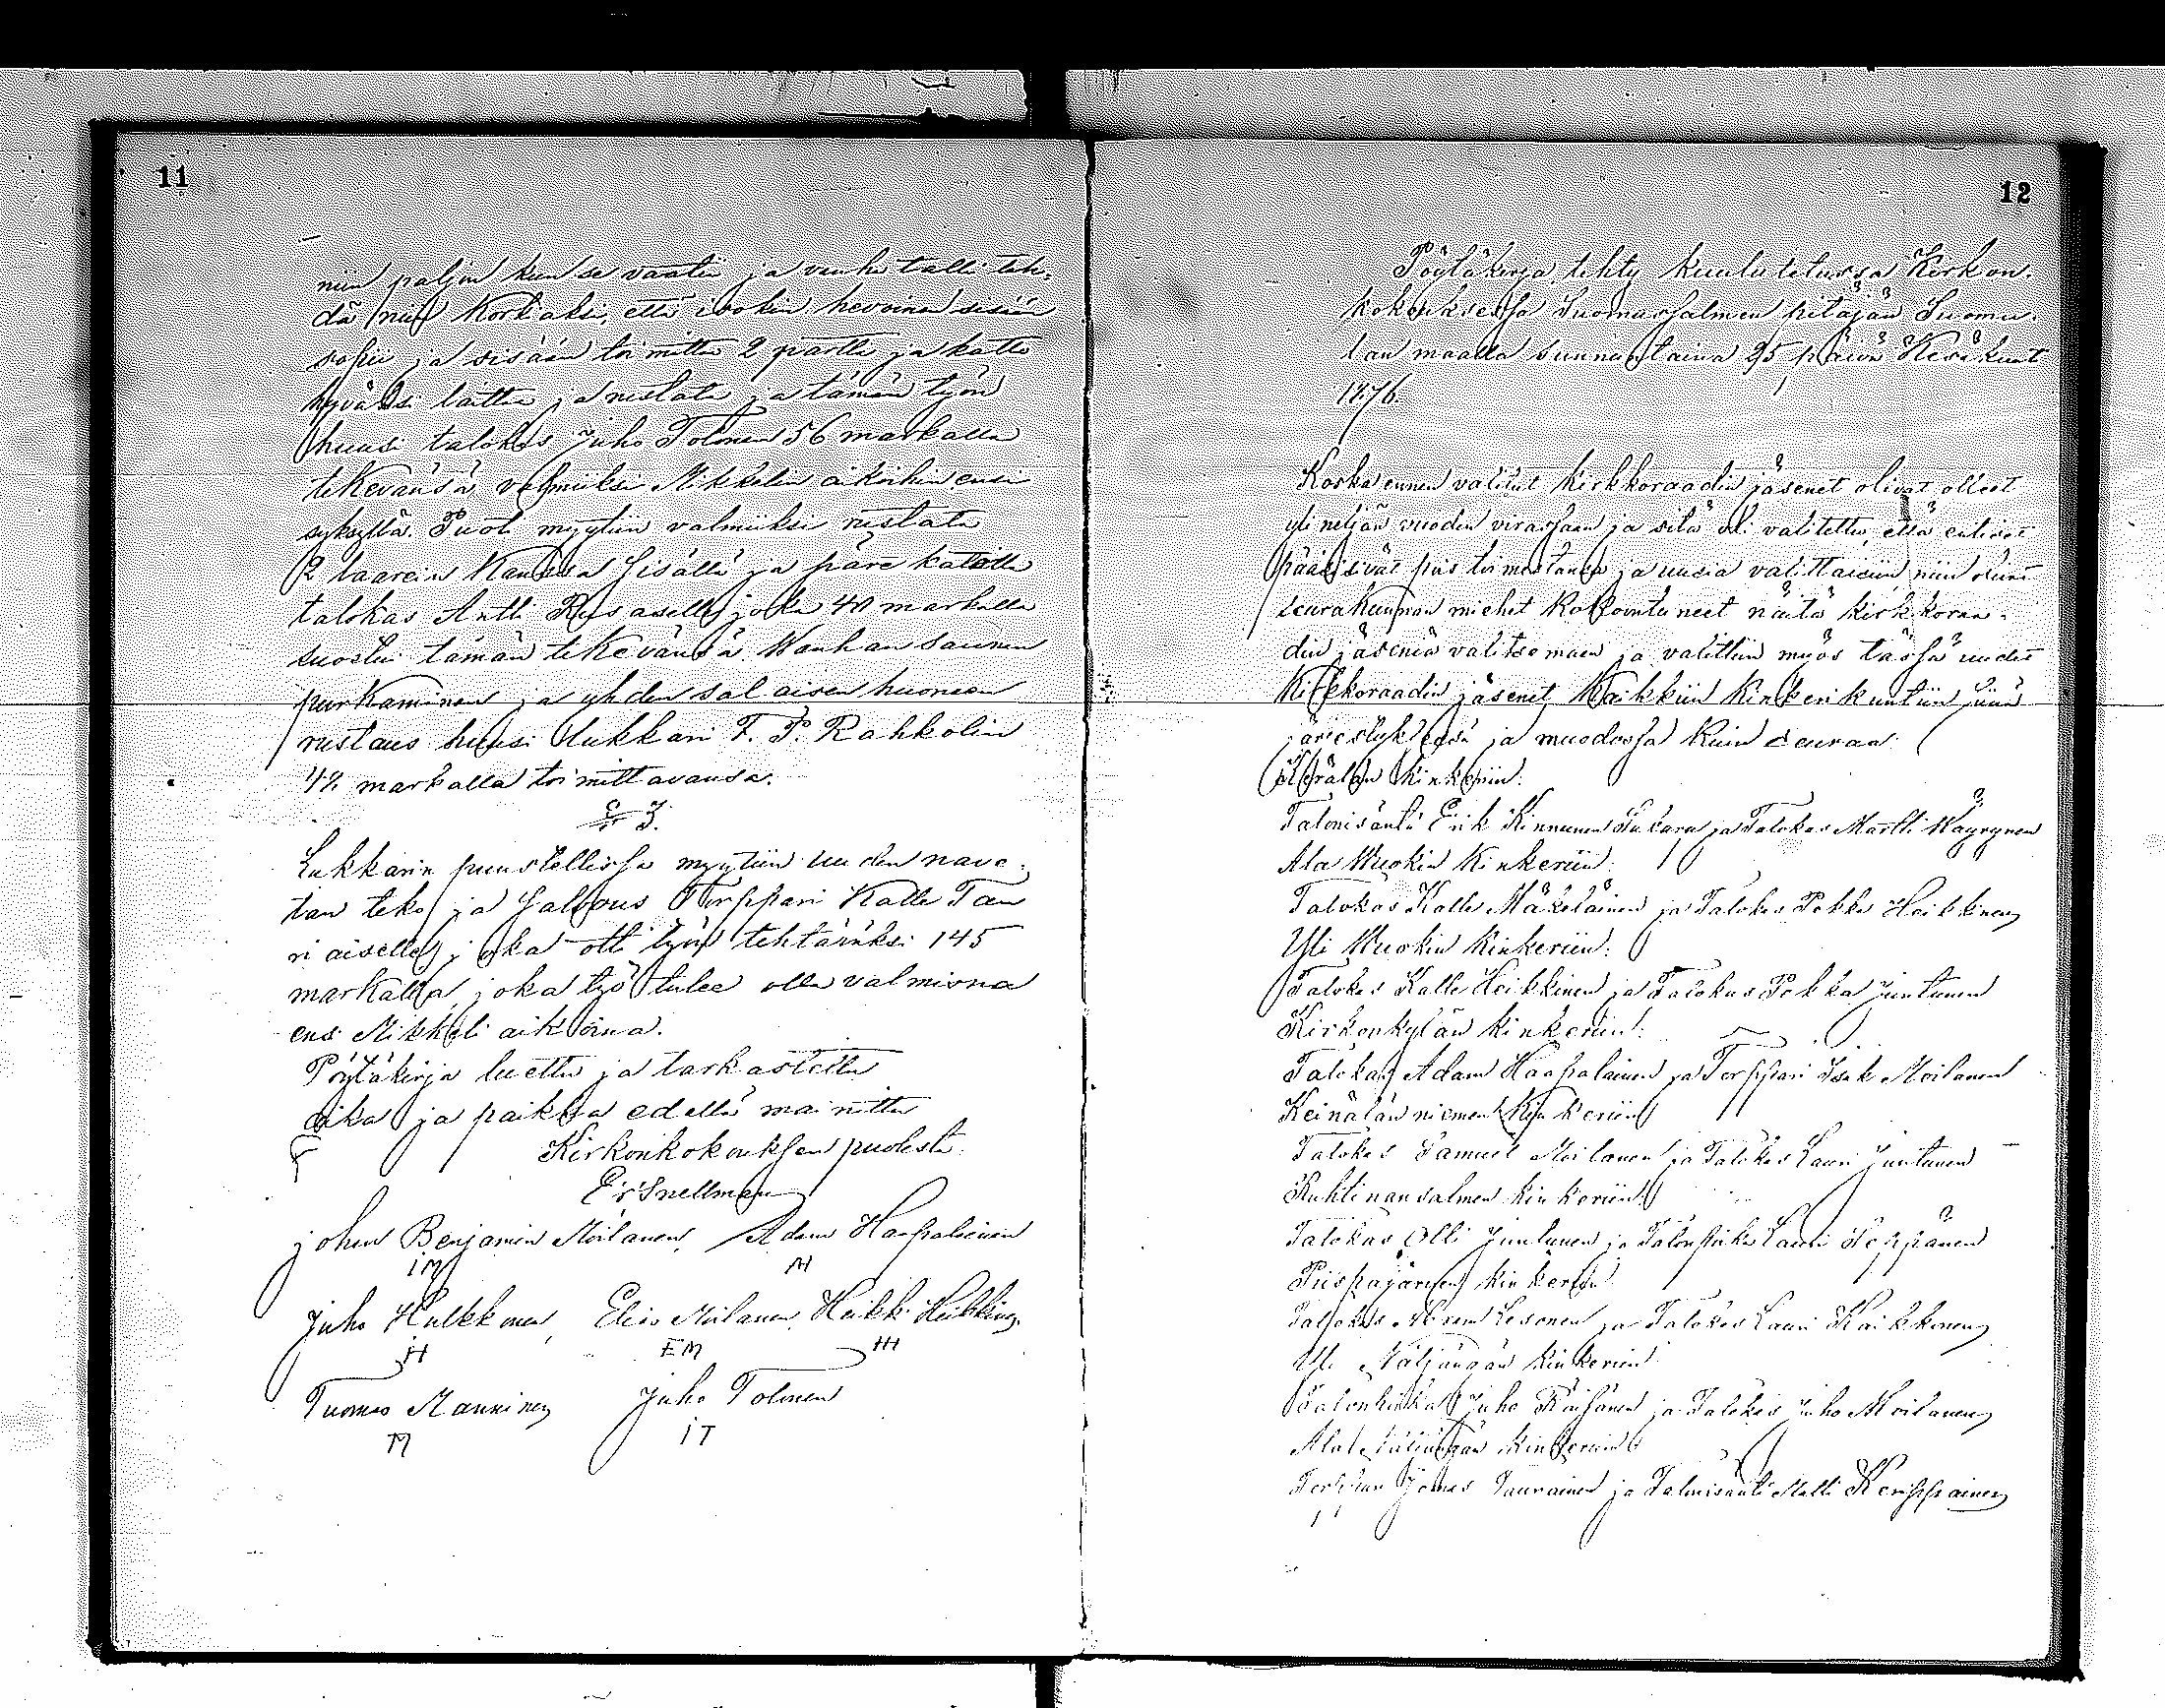 11
niin paljon kun se vaatii ja vanha talli teh¬
dä niin korkiaksi, että isokin hevoinen sisään
sopii ja sisään toimittaa 2 partta ja katto
hyväksi laittaa ja rustata ja tämän työn
huusi talokas Juho Tolonen 56 markalla
tekevänsä valmiiksi Mikkelin aikoihin ensi
syksyllä. Puot myytiin valmiiksi rustata
2 laarein kanssa sisällä ja päre katolla
talokas Antti Rusaselle joka 40 markalla
suostui tämän tekevänsä. Wanhan saunan
purkaminen ja yhden salaisen huoneen
rustaus huusi lukkari F. P. Rahkolin
48 markalla toimittavansa.
§ 3.
Lukkarin puustellissa myytiin uuden nave¬
tan teko ja salvous Torppari Kalle Tau
riaiselle, joka otti työn tehtäväksi 145
markalla, joka työ tulee olla valmisna
ens. Mikkeli aikoina.
Pöytäkirja luettu ja tarkastettu
aika ja paikka edellä mainittu
Kirkonkokouksen puolesta:
Er Snellman
john Benjamin Moilanen, Adam Haapalainen
IM AH
Juho Hulkkonen, Elias Moilanen, Heikki Heikkinen,
JH EM HH
Tuomas Manninen Juho Tolonen
TM IT
12
Pöytäkirja, tehty kuulutetussa Kirkon¬
kokouksessa Suomussalmen pitäjän Suomu¬
lan maalla sunnuntaina 25 päivä Kesäkuut
1876.
Koska ennen valitut kirkkoraadin jäsenet olivat olleet
yli neljän vuoden virassaan ja sitä oli valitettu, että entiset
pääsisivät pois toimestansa ja uusia valittaisiin niin olivat
seurakunnan miehet kokoontuneet näitä kirkkoraa¬
din jäseniä valitsemaan ja valittiin myös tässä uudet
kirkkoraadin jäsenet kaikkiin kinkerikuntiin siinä
järjestyksessä ja muodossa kuin seuraa:
kinkeriin:
Talonisäntä Erik Kinnunen ja Talokas Martti Väyrynen
Ala Wuokin kinkeriin:
Talokas Kalle Mäkeläinen ja Talokas Pekka Heikkinen
Yli Wuokin kinkeriin:
Talokas Kalle Heikkinen ja Talokas Pekka Juntunen
Kirkonkylän kinkeriin:
Talokas Adam Haapalainen ja Torppari Isak Moilanen
Keinälän niemen kinkeriin:
Talokas Samuel Moilanen ja Talokas Lauri Juntunen
Ruhtinansalmen kinkeriin:
Talokas Olli Juntunen ja Talonpoika Lauri Seppänen
Piispajärven kinkeriin:
Talokas Abram Lesonen ja Talokas Lauri Kaikkonen
Yli Näljängän kinkeriin:
Talonpoika Juho Räihänen ja Talokas Juho Moilanen
Ala Näljängän kinkeriin:
Torppari Jonas Tauriainen ja Talonisäntä Matti Kerippainen